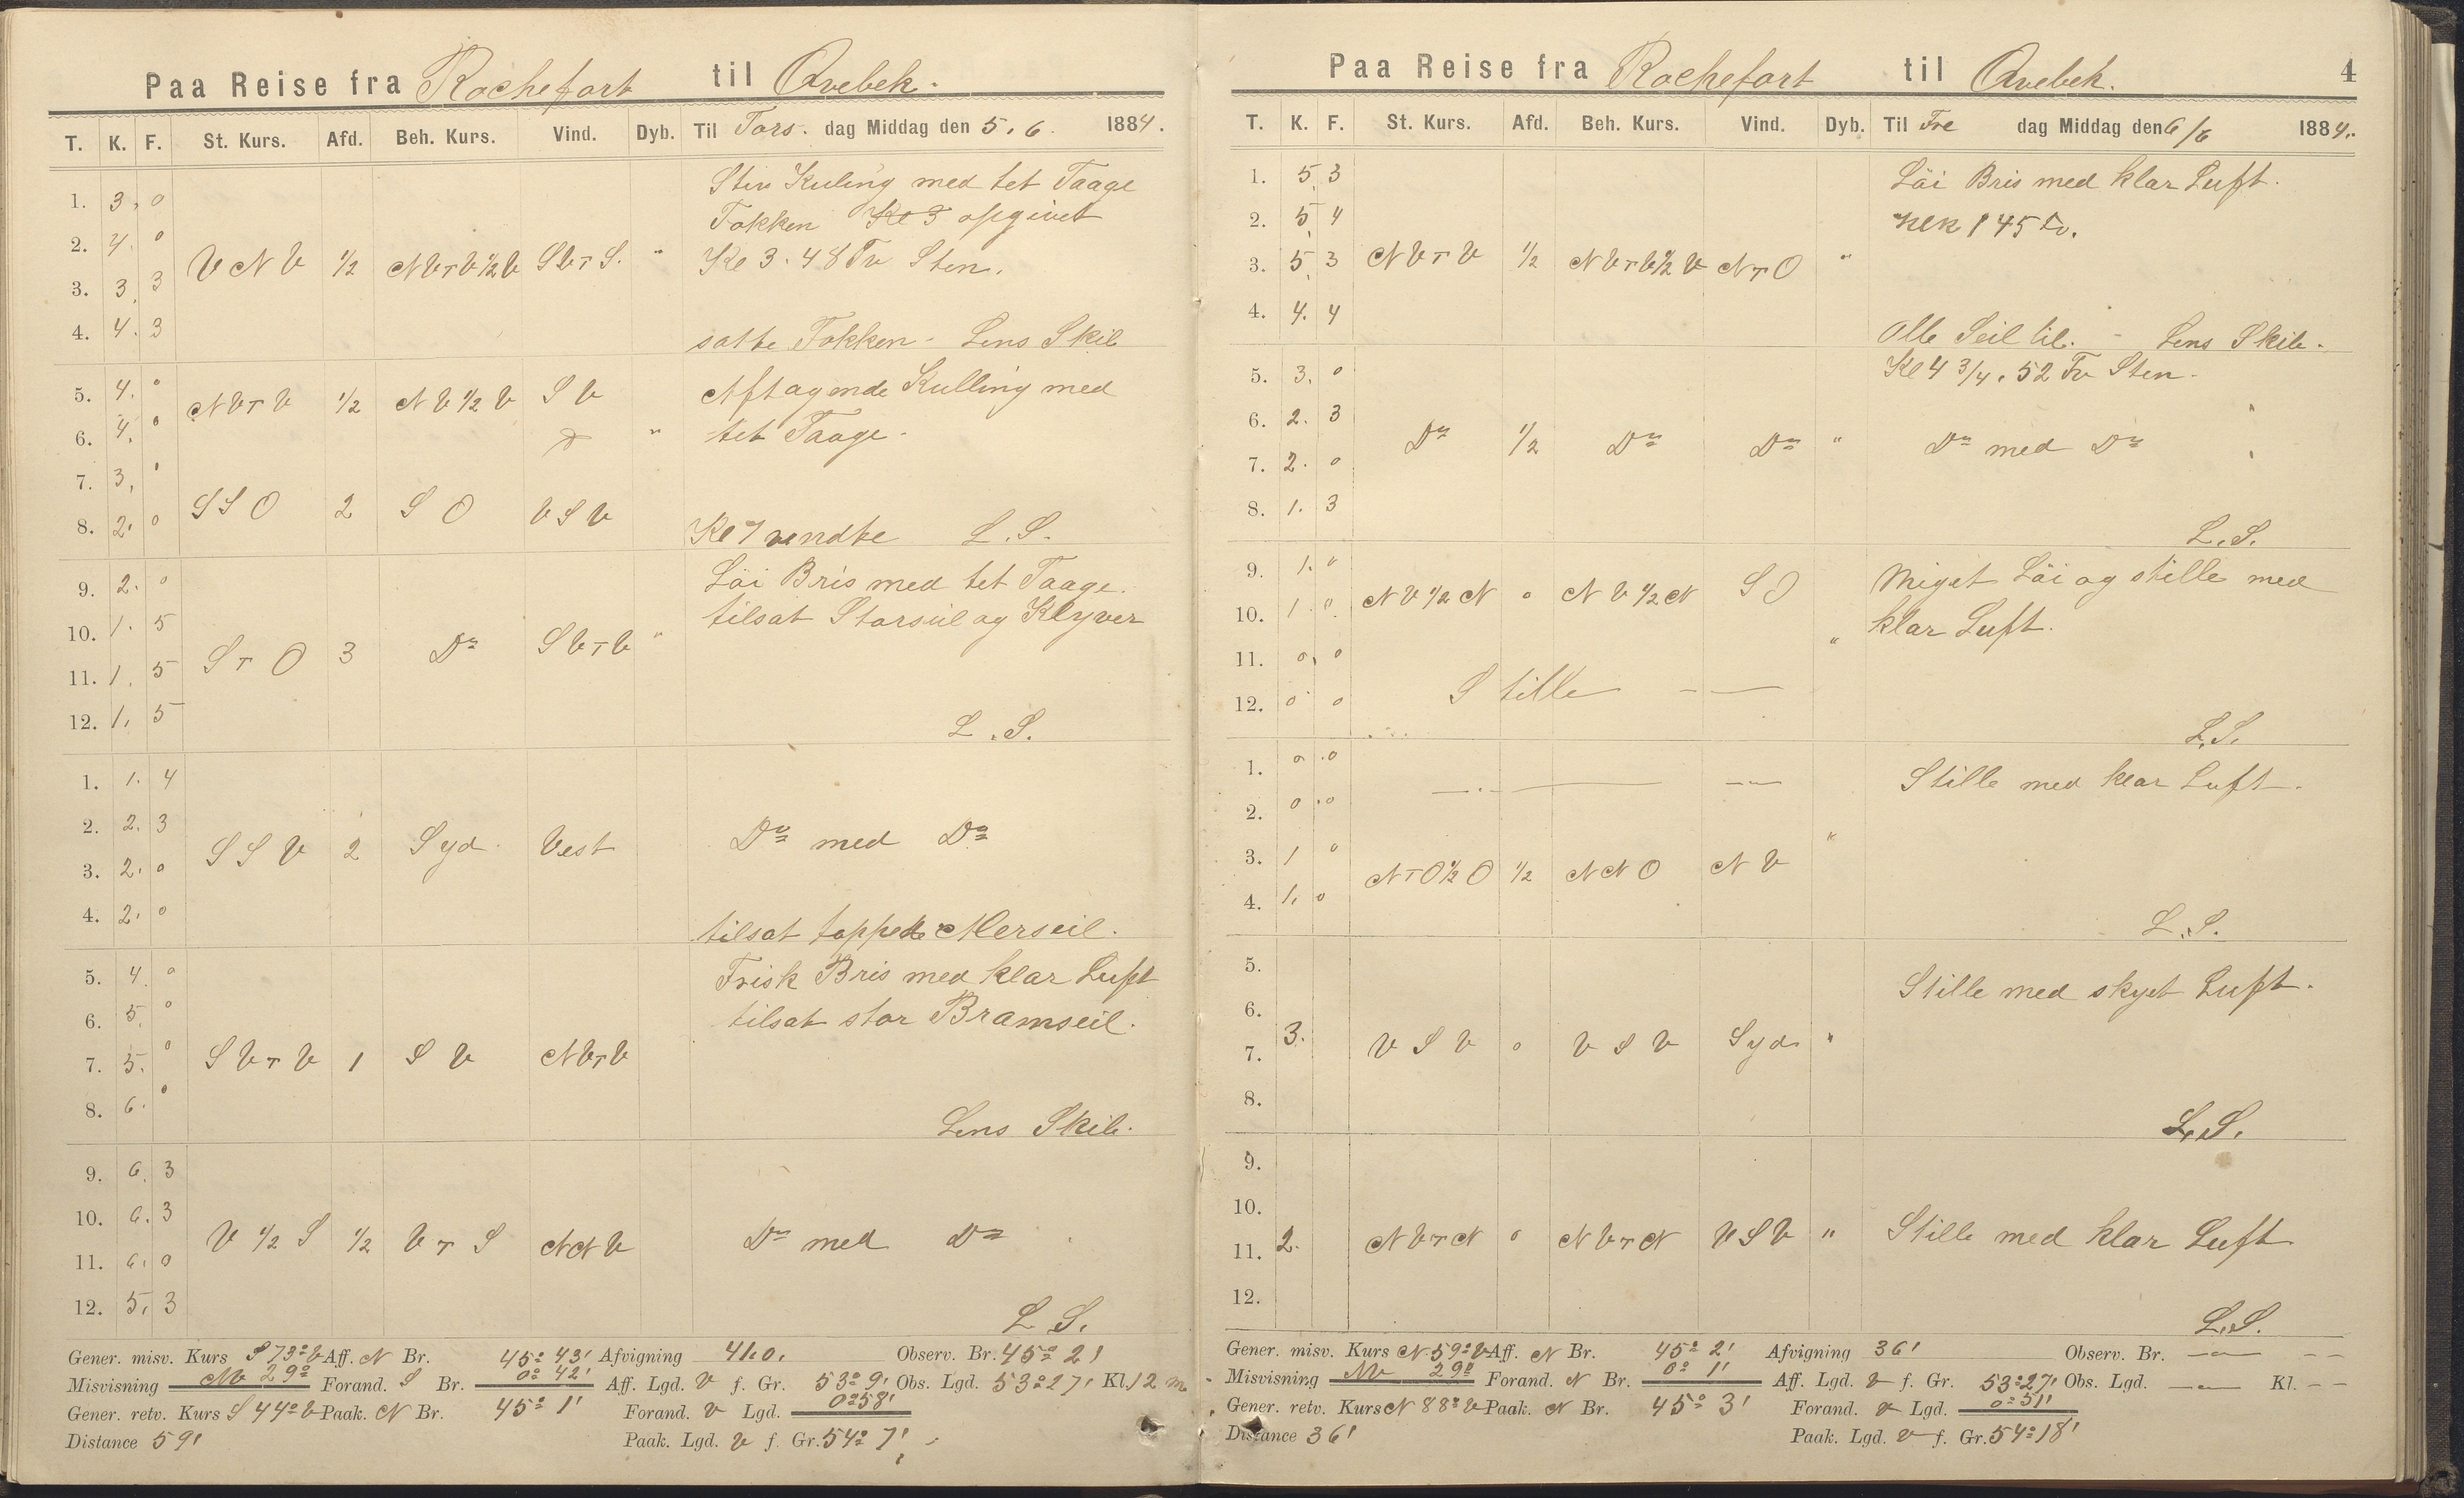 Paa Reise fra Rochefort til Qvebek.
T. K. F. St. Kurs. Afd. Beh. Kurs. Vind. Dyb. Til Tors. dag Middag den 5. 6. 1884.
Stiv Kuling med tet Taage
1. 3. 0
Fokken Kl 3 opgivet
2. 4. 0
V N V 1/2 N V T V 1/2 V S V T S. " Kl 3. 48 Fv Sten.
3. 3. 3
4. 4. 3
satte Fokken - Lens Skib
5. 4. 0 N V T V 1/2 N V 1/2 V S V Aftagende Kulling med
6. 4. 0 " tet Taage.
7. 3. 0
8. 2. 0 S S O 2 S O V S V
Kl 7 vendte L. S.
9. 2. 0 Löi Bris med tet Taage.
tilsat Storseil og Klyver
10. 1. 5
S T O 3 Do S V T V "
11. 1. 5
12. 1. 5
L. S.
1. 1. 4
2. 2. 3
S S V 2 Syd. Vest Do med Do
3. 2. 0
4. 2. 0
tilsat toppede Merseil.
5. 4. 0 Frisk Bris med klar Luft
6. 5. 0 tilsat stor Bramseil.
7. 5. 0 S V T V 1 S V N V T V
8. 6. 0
Lens Skib.
9. 6. 3
10. 6. 3
V 1/2 S 1/2 V T S N N V Do med Do
11. 6. 0
12. 5. 3
L S.
Gener. misv. Kurs S 73° V Aff. N Br. 45° 43' Afvigning 41.0. Observ. Br. 45° 2'
Misvisning NV 29° Forand. S Br. 0° 42' Aff. Lgd. V f. Gr. 53° 9' Obs. Lgd. 53° 27' Kl. 12 m
Gener. retv. Kurs S 44° V Paak. N Br. 45° 1' Forand. V Lgd. 0° 58'
Distance 59' Paak. Lgd. V f. Gr. 54° 7'
Paa Reise fra Rochefort til Qvebek. 4
T. K. F. St. Kurs. Afd. Beh. Kurs. Vind. Dyb. Til Fre dag Middag den 6/6 1884.
1. 5. 3 Löi Bris med klar Luft.
2. 5. 4 1 45 Fv.
3. 5. 3 N V T V 1/2 N V T V 1/2 V N T O "
4. 4. 4
Alle Seil til. - Lens Skib.
5. 3. 0 Kl 4 3/4. 52 Fv Sten.
6. 2. 3
Do 1/2 Do Do " Do med Do
7. 2. 0
8. 1. 3
L. S.
9. 1. 0 N V 1/2 N 0 N V 1/2 N S O Meget Löi og stille med
10. 1. 0 " klar Luft.
11. 0. 0
12. 0. 0 Stille
L. S.
1. 0. 0 Stille med klar Luft.
2. 0. 0
3. 1 0 "
N T O 1/2 O 1/2 N N O N V
4. 1. 0
L. S.
5.
Stille med skyet Luft.
6.
3. V S V 0 V S V Syd "
7.
8.
L. S.
9.
10.
11. 2. N V T N 0 N V T N V S V " Stille med klar Luft
12.
L. S.
Gener. misv. Kurs N 59° V Aff. N Br. 45° 2' Afvigning 36' Observ. Br.
Misvisning NV 29° Forand. N Br. 0° 1' Aff. Lgd. V f. Gr. 53° 27' Obs. Lgd. Kl.
Gener. retv. Kurs N 88° V Paak. N Br. 45° 3' Forand. V Lgd. 0° 51'
Distance 36' Paak. Lgd. V f. Gr. 54° 18'